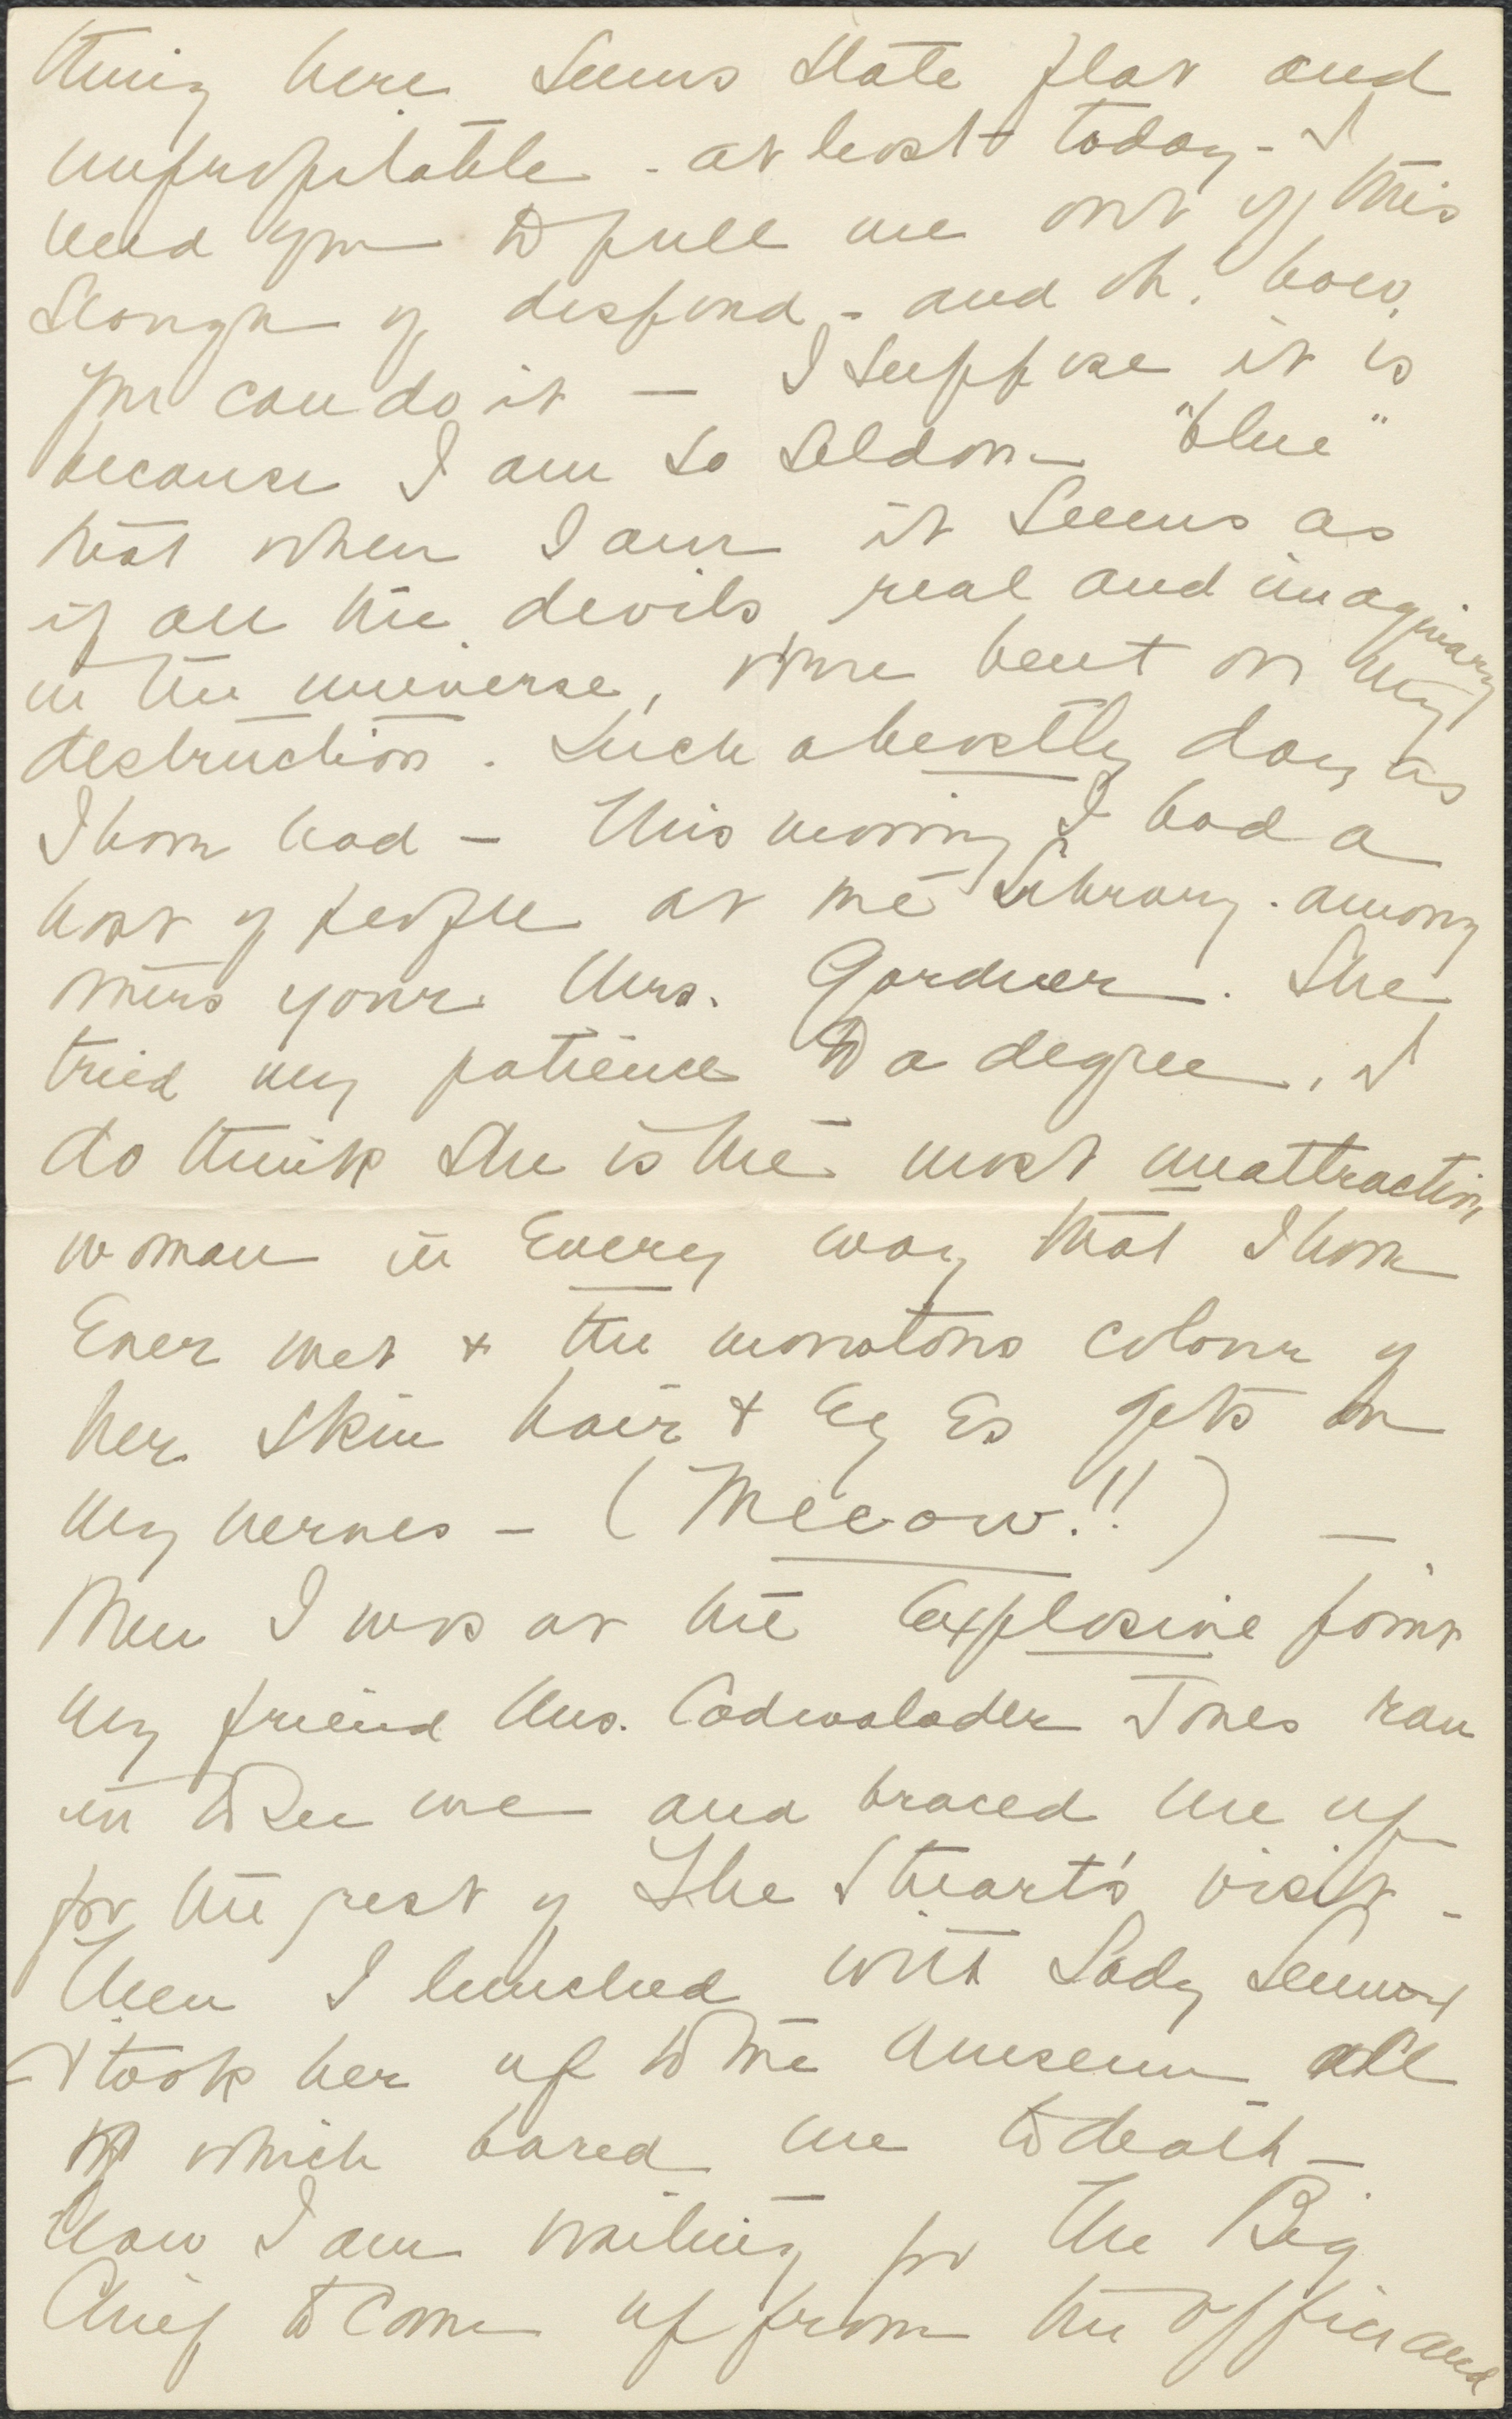 thing here seems stale flat and
unprofitable - at least today - I
need you to pull me out of this
Slough of despond - and oh! how
you can do it — I suppose it is
because I am so seldom "blue"
that when I am it seems as
if all the devils real and imaginary
in the universe, were bent on my
destruction. Such a beastly day as
I have had — This morning I had a
host of people at the Library. among
others your Mrs. Gardner. She
tried my patience to a degree, I
do think she is the most unattractive
woman in every way that I have
Ever met & the monotono colour of
her skin hair & Ey Es gets on
my nerves - (Meeow!!) —
When I was at the explosive point
my friend Mrs. Cadwalader Jones ran
in to see me and braced me up
for the rest of The Stuart's visit -
Then I lunched with Lady
& took her up to the Museum all
of which bored me to death -
Now I am waiting for the Big
Chief to come up from the office and